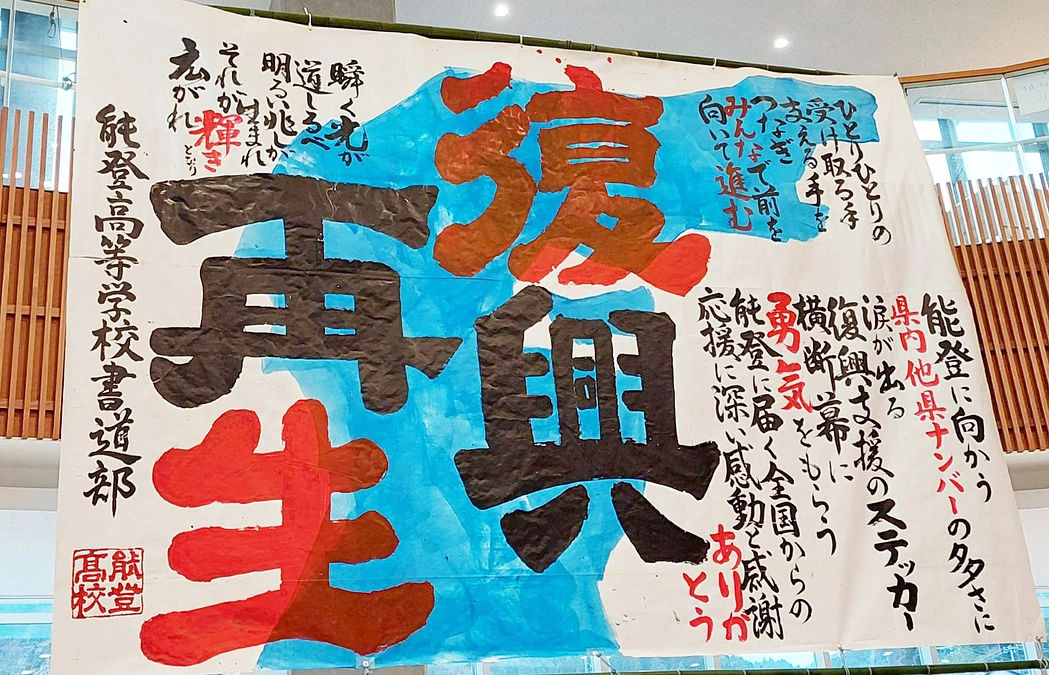 復興
再生
ひとりひとりの
受け取る手
支える手を
つなぎ
つナなで前を
みんな
向いて進む
能登に向かう
県内他県ナンバーの多さに
涙が出る
復興支援のステッカー
横断幕に
勇気をもらう
能登に届く全国からの
応援に深い感動と感謝
ありが
とう
瞬く光が
道しるべ
明るい兆しが
生まれ
それが輝き
となり
広がれ
能登高等学校書道部
能登
高校